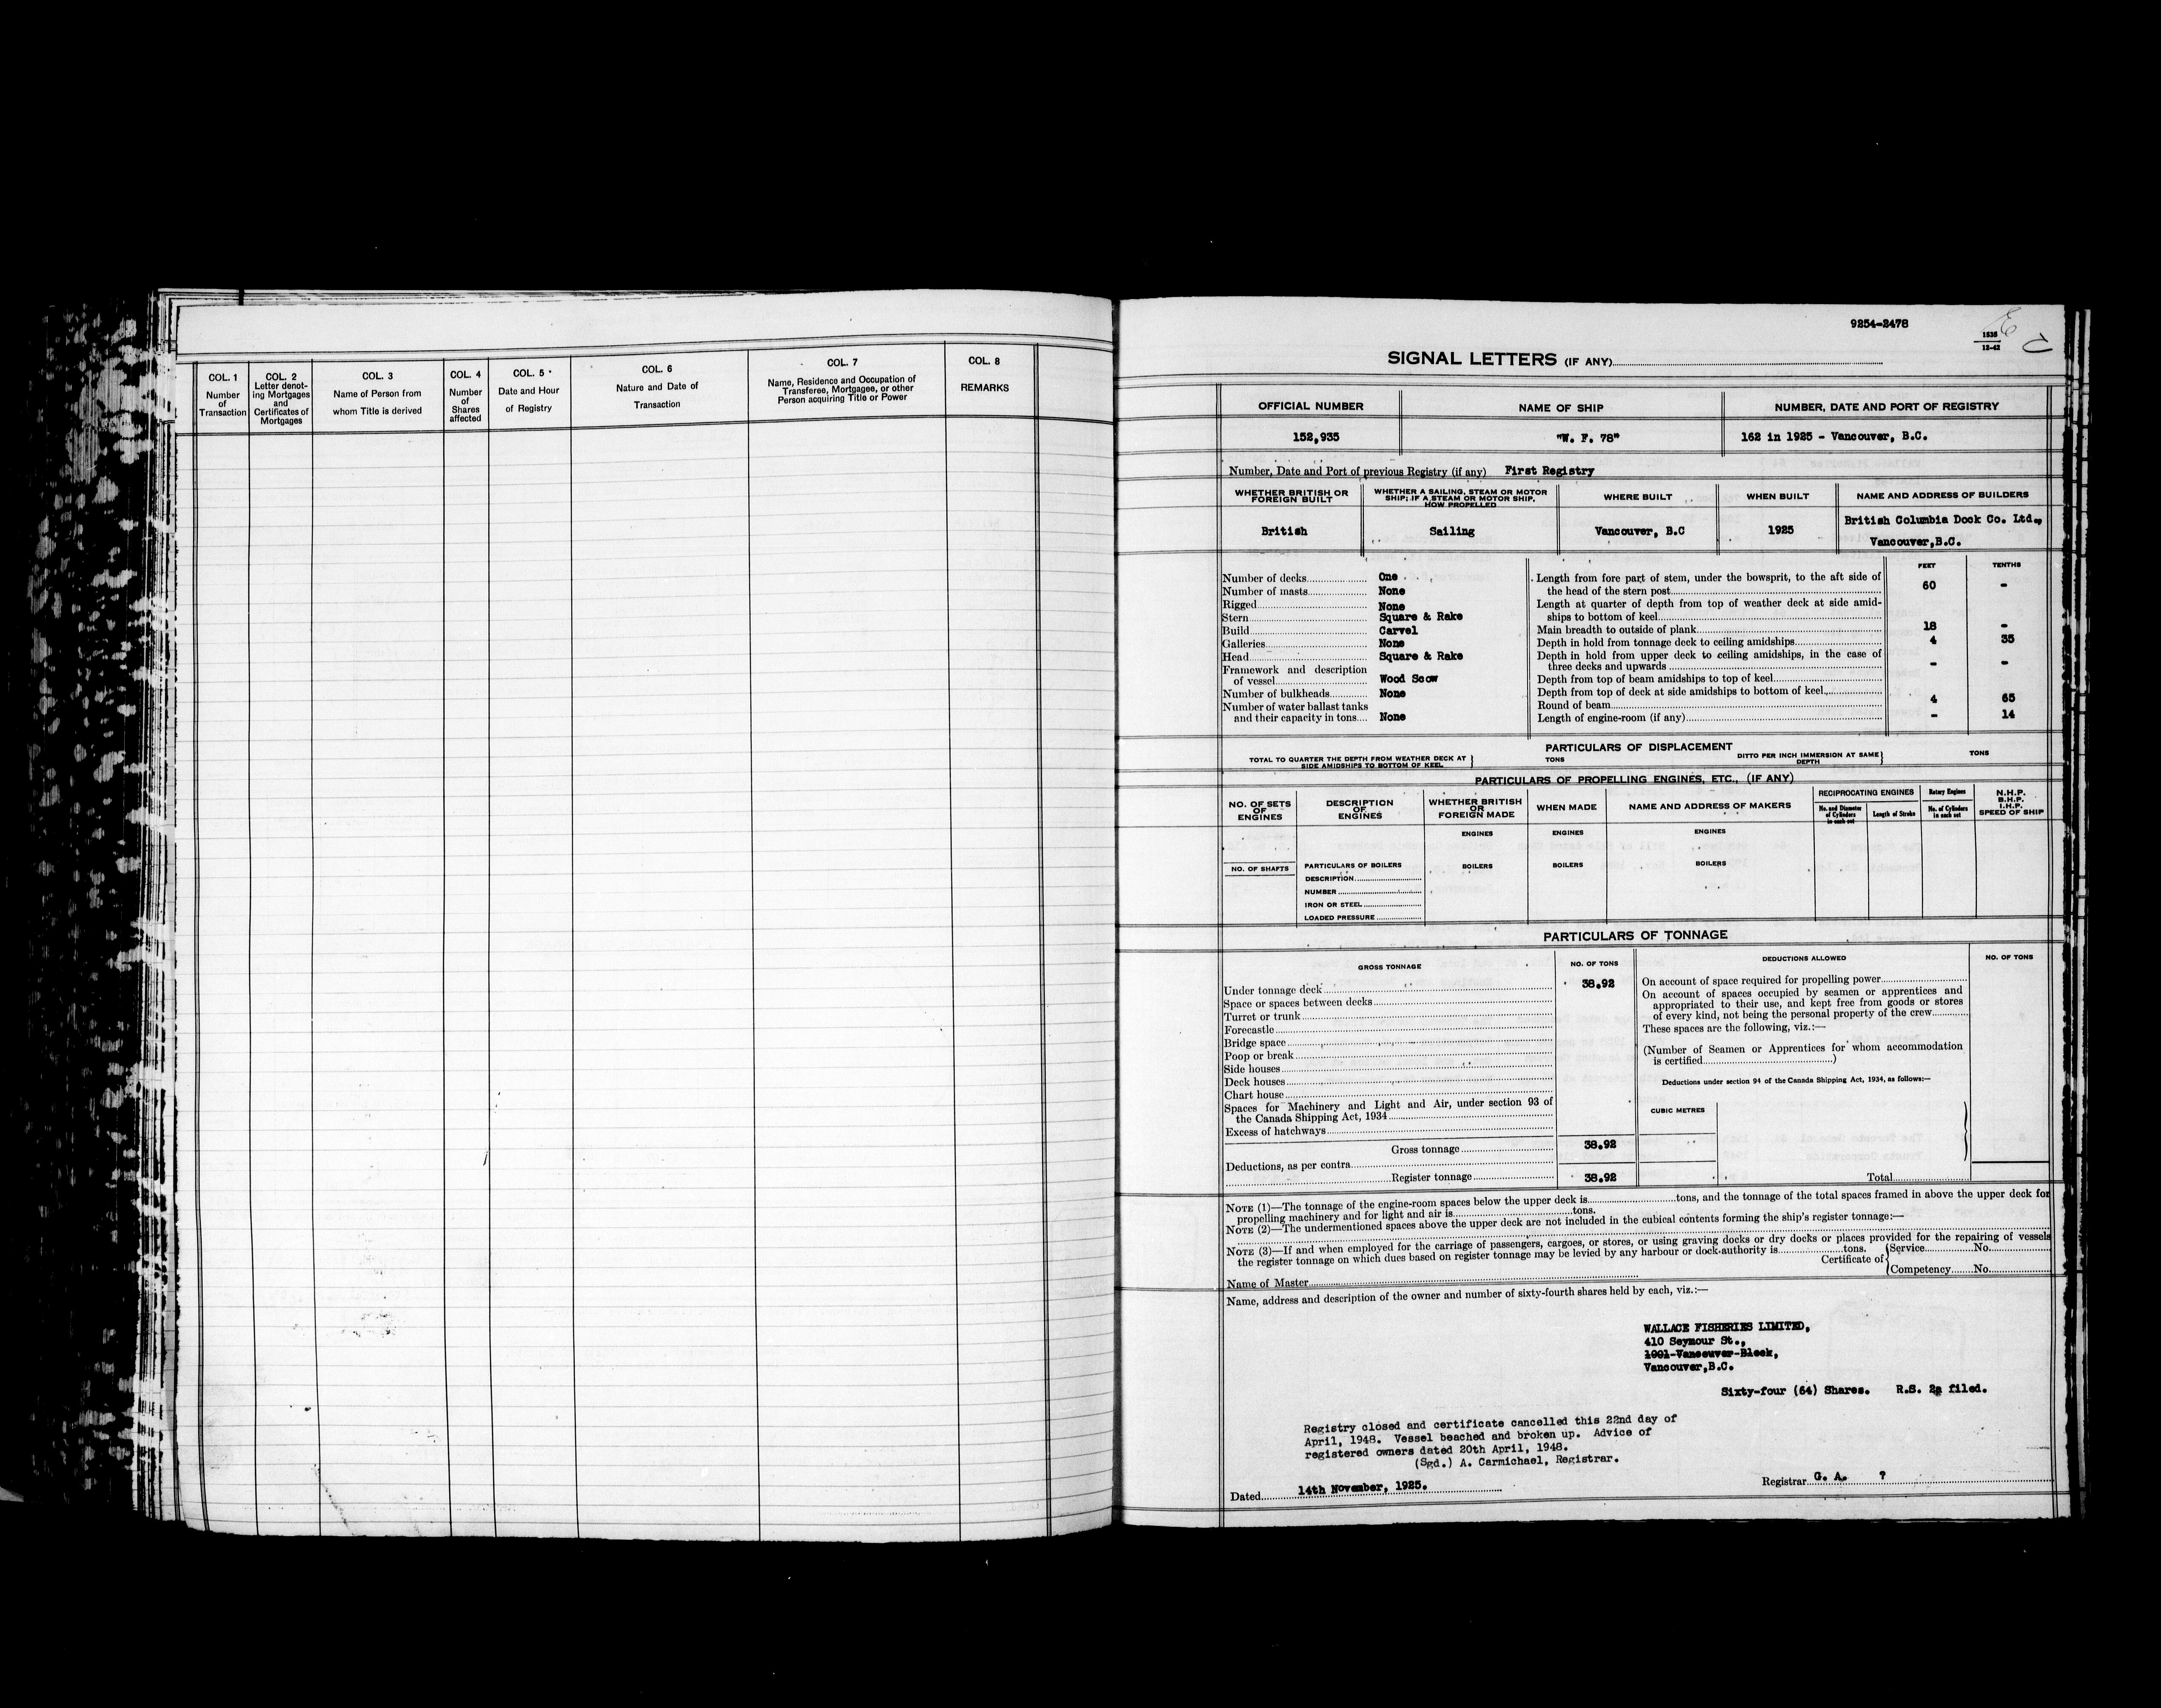 COL. 1
Number
of
Transaction
COL. 2
Letter denot-
ing Mortgages
and
Certificates of
Mortgages
COL. 3
Name of Person from
whom Title is derived
COL. 4
Number
of
Shares
affected
COL. 5
Date and Hour
of Registry
COL. 6
Nature and Date of
Transaction
COL. 7
Name, Residence and Occupation of
Transferee, Mortgagee, or other
Person acquiring Title or Power
COL. 8
REMARKS
9254-2478
1535
12-42
SIGNAL LETTERS (IF ANY)
OFFICIAL NUMBER NAME OF SHIP NUMBER, DATE AND PORT OF REGISTRY
152,935 "W. F. 78" 162 in 1925 - Vancouver, B.C.
Number, Date and Port of previous Registry (if any) First Registry
WHETHER BRITISH OR
FOREIGN BUILT
WHETHER A SAILING, STEAM OR MOTOR
SHIP; IF A STEAM OR MOTOR SHIP,
HOW PROPELLED
WHERE BUILT
WHEN BUILT
NAME AND ADDRESS OF BUILDERS
British
Sailing
Vancouver, B.C
1925
British Columbia Dock Co. Ltd.,
Vancouver,B.C.
Number of decks One
Number of masts None
Rigged None
Stern Square & Rake
Build Carvel
Galleries None
Head Square & Rake
Framework and description
of vessel Wood Scow
Number of bulkheads None
Number of water ballast tanks
and their capacity in tons None
FEET TENTHS
Length from fore part of stem, under the bowsprit, to the aft side of
the head of the stern post 60 -
Length at quarter of depth from top of weather deck at side amid-
ships to bottom of keel
Main breadth to outside of plank 18 -
Depth in hold from tonnage deck to ceiling amidships 4 35
Depth in hold from upper deck to ceiling amidships, in the case of
three decks and upwards - -
Depth from top of beam amidships to top of keel
Depth from top of deck at side amidships to bottom of keel 4 65
Round of beam - 14
Length of engine-room (if any)
PARTICULARS OF DISPLACEMENT
TOTAL TO QUARTER THE DEPTH FROM WEATHER DECK AT
SIDE AMIDSHIPS TO BOTTOM OF KEEL
TONS
DITTO PER INCH IMMERSION AT SAME
DEPTH
TONS
PARTICULARS OF PROPELLING ENGINES, ETC., (IF ANY)
NO. OF SETS
OF
ENGINES
DESCRIPTION
OF
ENGINES
WHETHER BRITISH
OR
FOREIGN MADE
WHEN MADE
NAME AND ADDRESS OF MAKERS
RECIPROCATING ENGINES
No. and Diameter
of Cylinders
in each set
Length of Stroke
Rotary Engines
No. of Cylinders
in each set
N.H.P.
B.H.P.
I.H.P.
SPEED OF SHIP
ENGINES ENGINES ENGINES
NO. OF SHAFTS
PARTICULARS OF BOILERS
BOILERS BOILERS BOILERS
DESCRIPTION
NUMBER
IRON OR STEEL
LOADED PRESSURE
PARTICULARS OF TONNAGE
GROSS TONNAGE NO. OF TONS
Under tonnage deck 38.92
Space or spaces between decks
Turret or trunk
Forecastle
Bridge space
Poop or break
Side houses
Deck houses
Chart house
Spaces for Machinery and Light and Air, under section 93 of
the Canada Shipping Act, 1934
Excess of hatchways
Gross tonnage 38.92
Deductions, as per contra
Register tonnage 38.92
DEDUCTIONS ALLOWED NO. OF TONS
On account of space required for propelling power
On account of spaces occupied by seamen or apprentices and
appropriated to their use, and kept free from goods or stores
of every kind, not being the personal property of the crew
These spaces are the following, viz.:—
(Number of Seamen or Apprentices for whom accommodation
is certified )
Deductions under section 94 of the Canada Shipping Act, 1934, as follows:—
CUBIC METRES
Total
NOTE (1)—The tonnage of the engine-room spaces below the upper deck is tons, and the tonnage of the total spaces framed in above the upper deck for
propelling machinery and for light and air is tons.
NOTE (2)—The undermentioned spaces above the upper deck are not included in the cubical contents forming the ship's register tonnage:—
NOTE (3)—If and when employed for the carriage of passengers, cargoes, or stores, or using graving docks or dry docks or places provided for the repairing of vessels
the register tonnage on which dues based on register tonnage may be levied by any harbour or dock authority is tons.
Certificate of
Service No.
Competency No.
Name of Master
Name, address and description of the owner and number of sixty-fourth shares held by each, viz.:—
WALLACE FISHERIES LIMITED,
410 Seymour St.,
1001-Vancouver-Block,
Vancouver,B.C.
Sixty-four (64) Shares. R.S. 2a filed.
Registry closed and certificate cancelled this 22nd day of
April, 1948. Vessel beached and broken up. Advice of
registered owners dated 20th April, 1948.
(Sgd.) A. Carmichael, Registrar.
Dated 14th November, 1925.
Registrar G. A. ?